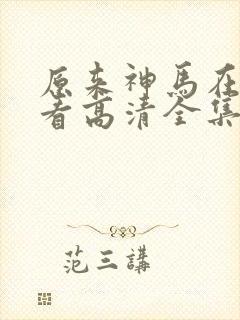 原来神马在
看高清全集
范三講